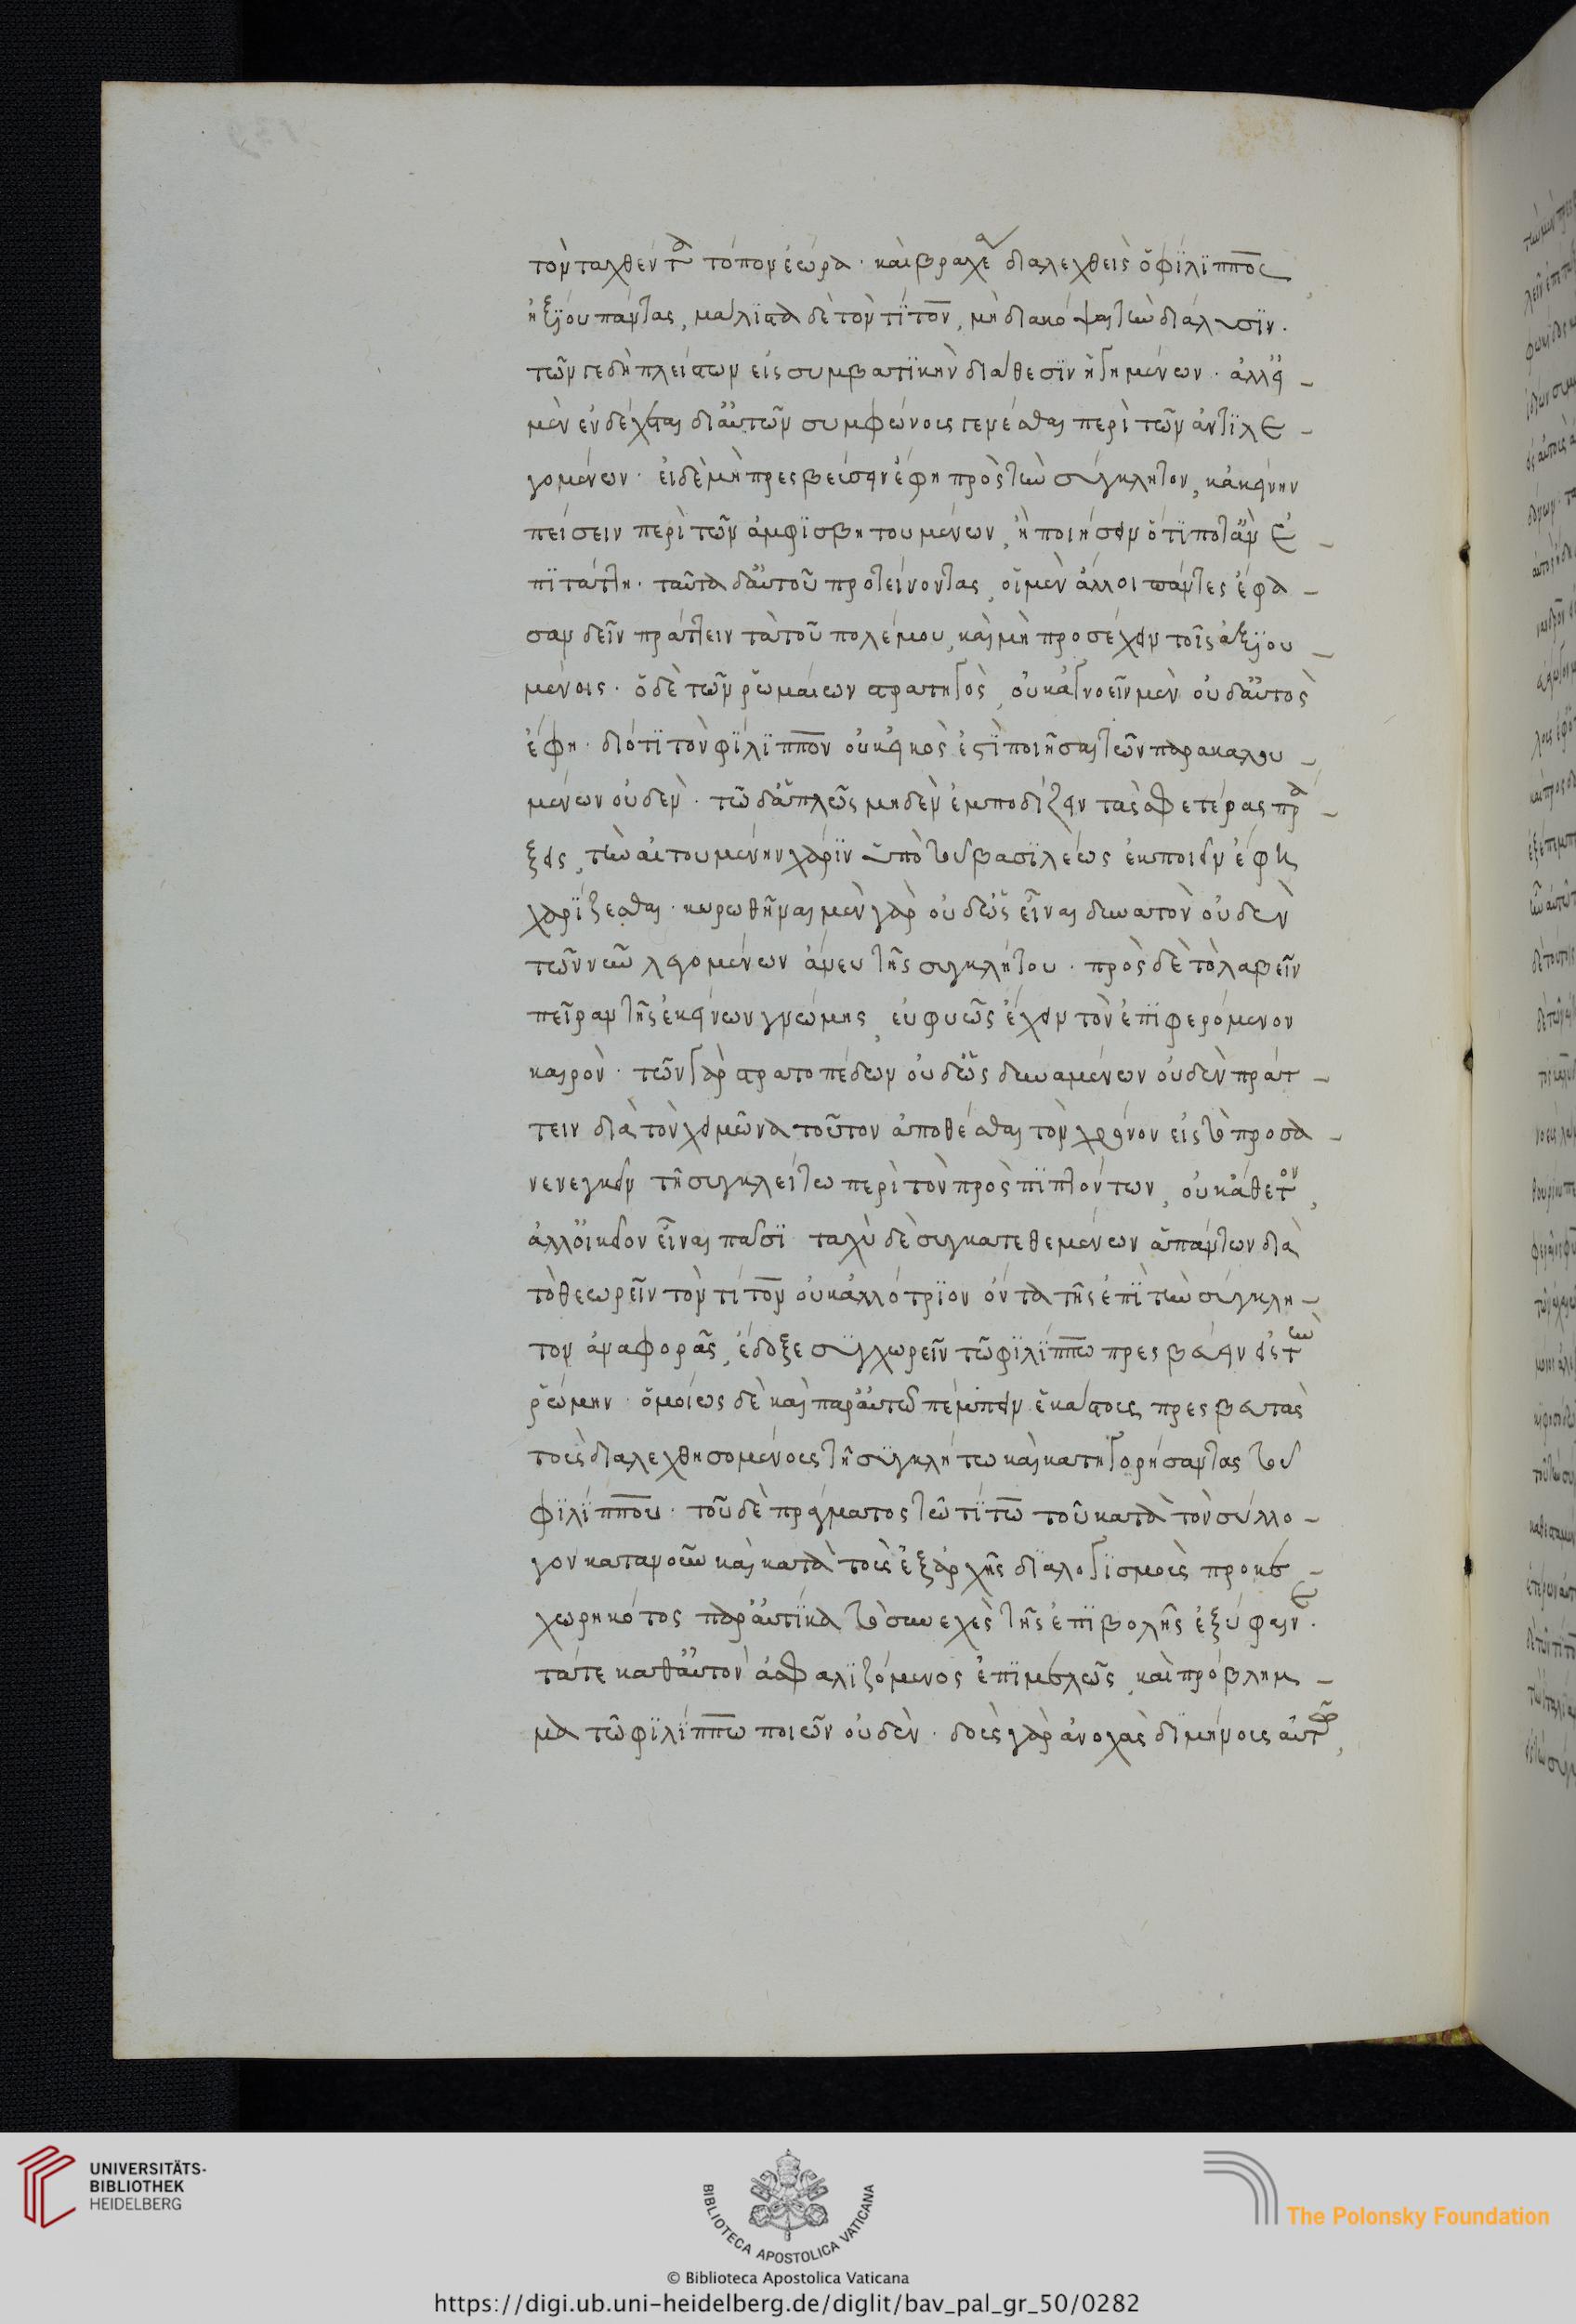 τὸν ταχθέντα τόπον ἑώρα· καὶ βραχέα διαλεχθεὶς ὁ φίλιππος
ἠξίου πάντας, μάλιστα δὲ τὸν τίτον, μὴ διακόψαι τὴν διάλυσιν.
τῶν γε δὴ πλείστων εἰς συμβατικὴν διάθεσιν ἠγμένων· ἀλλ' εἰ
μὲν ἐνδέχεται δι' αὑτῶν συμφώνους γενέσθαι περὶ τῶν ἀντιλε-
γομένων· εἰ δὲ μὴ πρεσβεύσειν ἔφη πρὸς τὴν σύγκλητον, κἀκείνην
πείσειν περὶ τῶν ἀμφισβητουμένων, ἢ ποιήσειν ὅτι ποτ' ἂν ἐ-
πιτάττη· ταῦτα δ' αὐτοῦ προτείνοντας, οἱ μὲν ἄλλοι πάντες ἔφα-
σαν δεῖν πράττειν τὰ τοῦ πολέμου, καὶ μὴ προσέχειν τοῖς ἀξιου-
μένοις· ὁ δὲ τῶν ῥωμαίων στρατηγὸς, οὐκ ἀγνοεῖν μὲν οὐδ' αὐτὸς
ἔφη· διότι τὸν φίλιππον οὐκ εἰκὸς ἐστὶ ποιῆσαι τῶν παρακαλου-
μένων οὐδέν· τῶ δ' ἁπλῶς μηδὲν ἐμποδίζειν τὰς σφετέρας πρά-
ξεις, τὴν αἰτουμένην χάριν ὑπὸ τοῦ βασιλέως ἐκποιεῖν ἔφη
χαρίζεσθαι· κυρωθῆναι μὲν γὰρ οὐδ' ὣς εἶναι δυνατὸν οὐδὲν
τῶν νῦν λεγομένων ἄνευ τῆς συγκλήτου· πρὸς δὲ τὸ λαβεῖν
πεῖραν τῆς ἐκείνων γνώμης, εὐφυῶς ἔχειν τὸν ἐπιφερόμενον
καιρόν· τῶν γὰρ στρατοπέδων οὐδ' ὣς δυναμένων οὐδὲν πράτ-
τειν διὰ τὸν χειμῶνα τοῦτον ἀποθέσθαι τὸν χρόνον εἰς τὸ προσα-
νενεγκεῖν τῆ συγκλείτω περὶ τὸν προσπιπτόντων, οὐκ ἄθετον,
ἀλλ' οἰκεῖον εἶναι πᾶσι ταχὺ δὲ συγκατεθεμένων ἁπάντων διὰ
τὸ θεωρεῖν τὸν τίτον οὐκ ἀλλότριον ὄντα τῆς ἐπὶ τὴν σύγκλη-
τον ἀναφορᾶς, ἔδοξε συγχωρεῖν τῶ φιλίππω πρεσβεύειν εἰς τὴν
ῥώμην· ὁμοίως δὲ καὶ παρ' αὐτοῦ πέμπειν ἑκάστους πρεσβευτὰς
τοὺς διαλεχθησομένους τῆ συγκλήτω καὶ κατηγορήσαντας τοῦ
φιλίππου· τοῦ δὲ πράγματος τῶ τίτω τοῦ κατὰ τὸν σύλλο-
γον κατανοῦν καὶ κατὰ τοὺς ἐξαρχῆς διαλογισμοὺς προκε-
χωρηκότος παραυτίκα τὸ συνεχὲς τῆς ἐπιβολῆς ἐξύφαινε.
τάτε καθ' αὑτὸν ἀσφαλιζόμενος ἐπιμελῶς, καὶ πρόβλημ-
μα τῶ φιλίππω ποιῶν οὐδέν· δοὺς γὰρ ἀνοχὰς διμήνους αὐτῶ,
UNIVERSITÄTS-
BIBLIOTHEK
HEIDELBERG
BIBLIOTECA APOSTOLICA VATICANA
The Polonsky Foundation
© Biblioteca Apostolica Vaticana
https://digi.ub.uni-heidelberg.de/diglit/bav_pal_gr_50/0282